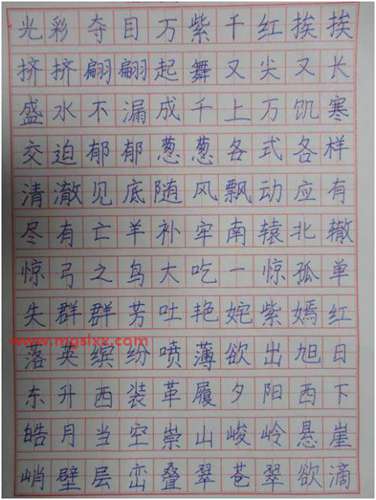 光彩夺目万紫千红挨挨
挤挤翩翩起舞又尖又长
盛水不漏成千上万饥寒
交迫郁郁葱葱各式各样
清澈见底随风飘动应有
尽有亡羊补牢南辕北辙
惊弓之鸟大吃一惊孤单
失群群芳吐艳姹紫嫣红
www.mgslxz.com
落英缤纷喷薄欲出旭日
东升西装革履夕阳西下
皓月当空崇山峻岭悬崖
峭壁层峦叠翠苍翠欲滴